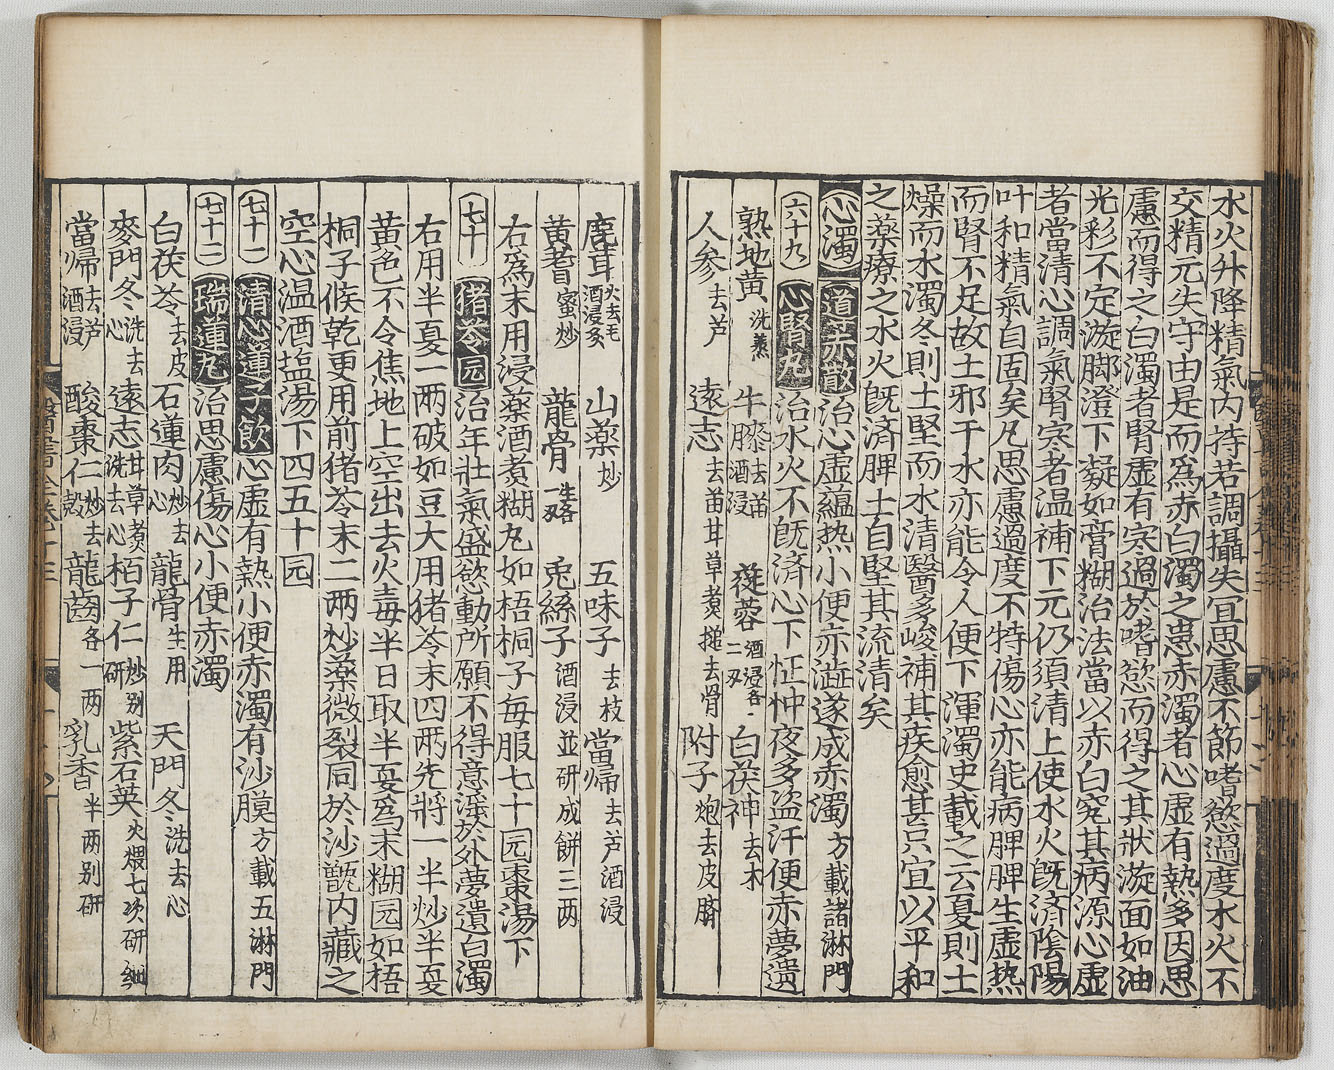 水火升降精氣內持若調攝失宜思慮不節嗜慾過度水火不
交精元失守由是而爲赤白濁之患赤濁者心虛有熱多因思
慮而得之白濁者腎虛有寒過於嗜慾而得之其狀漩面如油
光彩不定漩脚澄下凝如膏糊治法當以赤白究其病源心虛
者當清心調氣腎寒者温補下元仍須清上使水火既済陰陽
叶和精氣自固矣凡思慮過度不特傷心亦能病脾脾生虛热
而腎不足故土邪干水亦能令人便下渾濁史載之云夏則土
燥而水濁冬則土堅而水清醫多峻補其疾愈甚只宜以平和
之薬療之水火既済脾土自堅其流清矣
心濁 導赤散 治心虛蘊热小便赤澁遂成赤濁 方載諸淋門
六十九 心腎丸 治水火不既済心下怔忡夜多盗汗便赤夢遺
熟地黄 洗蒸 牛膝 去苗酒浸 蓯蓉 酒浸各二两 白茯神 去木
人参 去芦 遠志 去苗甘草煑搥去骨 附子 炮去皮臍
鹿茸 火去毛酒浸炙 山薬 炒 五味子 去枝 當帰 去芦酒浸
黄耆 蜜炒 龍骨 生各一两 兎絲子 酒浸並研成餅三两
右爲末用浸薬酒煑糊丸如梧桐子每服七十园棗湯下
七十 猪苓园 治年壮氣盛慾動所願不得意滛於外夢遺白濁
右用半夏一两破如豆大用猪苓末四两先將一半炒半夏
黄色不令焦地上空出去火毒半日取半夏爲末糊园如梧
桐子候乾更用前猪苓末二两炒薬微裂同於沙甑内藏之
空心温酒塩湯下四五十园
七十一 清心蓮子飲 心虛有熱小便赤濁有沙膜 方載五淋門
七十二 瑞蓮丸 治思慮傷心小便赤濁
白茯苓 去皮 石蓮肉 炒去心 龍骨 生用 天門冬 洗去心
麥門冬 洗去心 遠志 洗甘草煑去心 栢子仁 炒别研 紫石英 火煆七次研細
當帰 去芦酒浸 酸棗仁 炒去殼 龍齒 各一两 乳香 半两别研